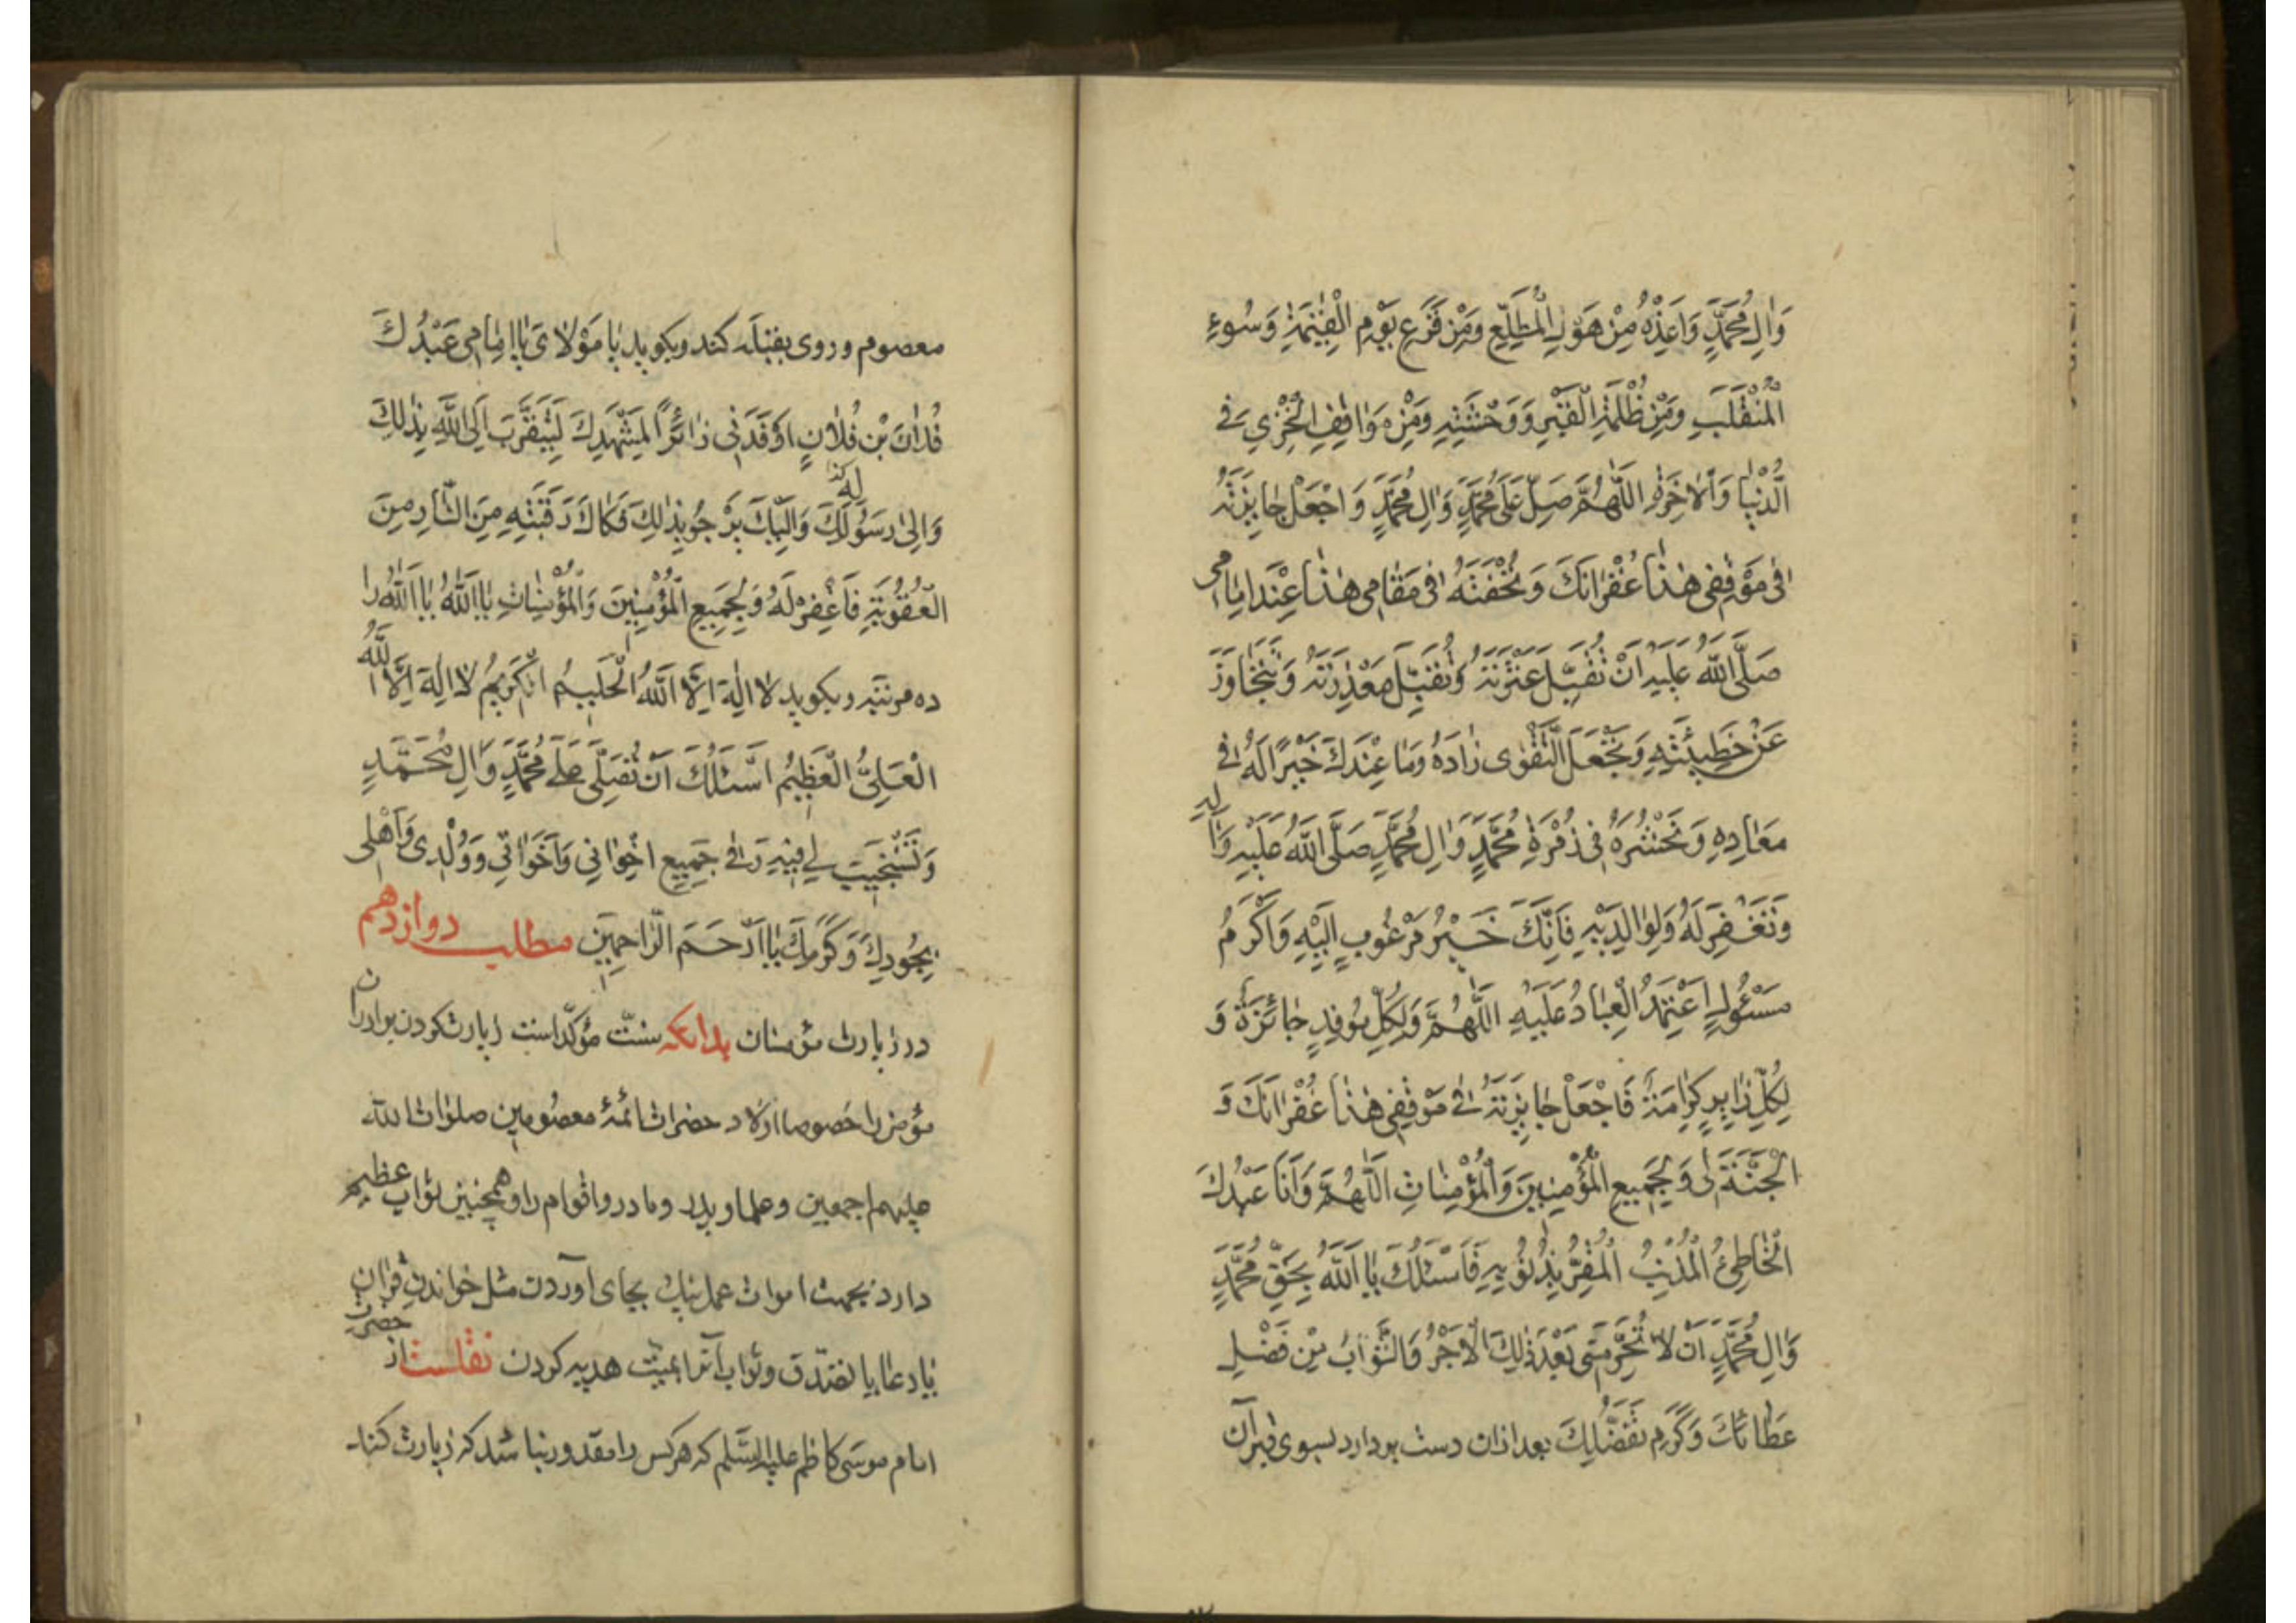 وَالِ مُحَمَّدٍ وَاَعِذْهُ مِنْ هَوْلِ الْمُطَّلَعِ وَمِنْ فَزَعِ يَوْمِ الْقِيٰمَةِ وَسُوءِ
الْمُنْقَلَبِ وَمِنْ ظُلْمَةِ الْقَبْرِ وَوَحْشَتِهِ وَمِنْ مَوَاقِفِ الْخِزْيِ فِى
الدُّنْيَا وَالْاٰخِرَةِ اَللّٰهُمَّ صَلِّ عَلٰى مُحَمَّدٍ وَالِ مُحَمَّدٍ وَ اجْعَلْ جٰايِزَتَهُ
فِى مَوْقِفِى هٰذٰا غُفْرٰانَكَ وَتُحْفَتَهُ فِى مَقٰامِى هٰذٰا عِنْدَ اِمٰامِى
صَلَّى اللّٰهُ عَلَيْهِ اَنْ تُقِيلَ عَثْرَتَهُ وَتَقْبَلَ مَعْذِرَتَهُ وَتَتَجٰاوَزَ
عَنْ خَطِيئَتِهِ وَتَجْعَلَ التَّقْوٰى زٰادَهُ وَمٰا عِنْدَكَ خَيْرًا لَهُ فِى
مَعٰادِهِ وَتَحْشُرَهُ فِى زُمْرَةِ مُحَمَّدٍ وَالِ مُحَمَّدٍ صَلَّى اللّٰهُ عَلَيْهِ وَاٰلِهِ
وَتَغْفِرَ لَهُ وَلِوٰالِدَيْهِ فَاِنَّكَ خَيْرُ مَرْغُوبٍ اِلَيْهِ وَاَكْرَمُ
مَسْئُولٍ اِعْتَمَدَ الْعِبٰادُ عَلَيْهِ اَللّٰهُمَّ وَلِكُلِّ مُوفِدٍ جٰائِزَةٌ وَ
لِكُلِّ زٰايِرٍ كَرٰامَةٌ فَاجْعَلْ جٰايِزَتَهُ فِى مَوْقِفِى هٰذٰا غُفْرٰانَكَ وَ
الْجَنَّةَ لِى وَلِجَمِيعِ الْمُؤْمِنِينَ وَالْمُؤْمِنٰاتِ اَللّٰهُمَّ وَاَنَا عَبْدُكَ
الْخٰاطِئُ الْمُذْنِبُ الْمُقِرُّ بِذُنُوبِهِ فَاَسْئَلُكَ يٰا اَللّٰهُ بِحَقِّ مُحَمَّدٍ
وَالِ مُحَمَّدٍ اَنْ لٰا تَحْرِمَنِى بَعْدَ ذٰلِكَ الْاَجْرَ وَالثَّوٰابَ مِنْ فَضْلِ
عَطٰائِكَ وَكَرَمِ تَفَضُّلِكَ بعد ازان دست بردارد بسوی قبر آن
معصوم و روی بقبله کند و بکوید یٰا مَوْلٰاىَ يٰا اِمٰامِى عَبْدُكَ
فُلٰانُ بْنُ فُلٰانٍ اَوْفَدَنِى زٰائِرًا لِمَشْهَدِكَ لِيَتَقَرَّبَ اِلَى اللّٰهِ بِذٰلِكَ
وَاِلٰى رَسُولِكَ وَاِلَيْكَ يَرْجُو بِذٰلِكَ فَكٰاكَ رَقَبَتِهِ مِنَ النّٰارِ مِنَ
الْعُقُوبَةِ فَاغْفِرْ لَهُ وَلِجَمِيعِ الْمُؤْمِنِينَ وَالْمُؤْمِنٰاتِ يٰا اَللّٰهُ يٰا اَللّٰهُ را
ده مرتبه و بکوید لٰا اِلٰهَ اِلَّا اللّٰهُ الْحَلِيمُ الْكَرِيمُ لٰا اِلٰهَ اِلَّا اللّٰهُ
الْعَلِىُّ الْعَظِيمُ اَسْئَلُكَ اَنْ تُصَلِّىَ عَلٰى مُحَمَّدٍ وَالِ مُحَمَّدٍ
وَتَسْتَجِيبَ لِى فِيهِ وَفِى جَمِيعِ اِخْوٰانِى وَاَخَوٰاتِى وَوُلْدِى وَاَهْلِى
بِجُودِكَ وَكَرَمِكَ يٰا اَرْحَمَ الرّٰاحِمِينَ مطلب دوازدهم
در زیارت مؤمنان بدانکه سنّت مؤکّد است زیارت کردن برادران
مؤمن را خصوصا اولاد حضرات ائمهٔ معصومین صلوات الله
علیهم اجمعین و علما و پدر و مادر و اقوام را و همچنین ثواب عظیم
دارد بجهت اموات عمل نیک بجای آوردن مثل خواندن قرآن
یا دعا یا تصدّق و ثواب آنرا بمیّت هدیه کردن نقلست از حضرت
امام موسی کاظم علیه السّلم که هرکس را مقدور نباشد که زیارت کند